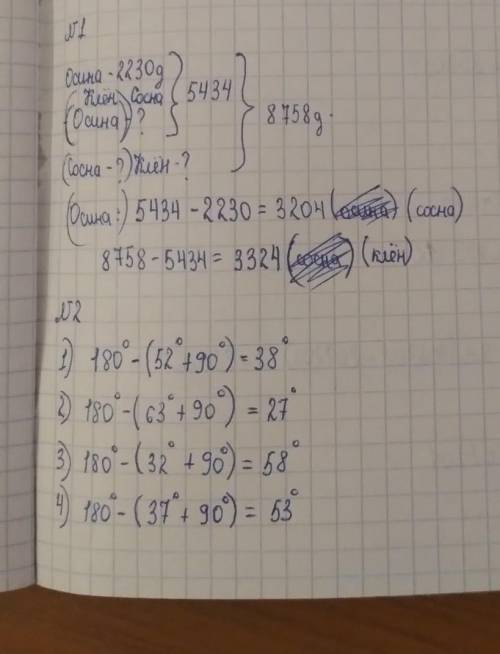 №1
Осина - 2230д
Клён Сосна
(Осина) - ?
5434
8758д.
(Сосна - ?) Клён - ?
(Осина:) 5434 - 2230 = 3204 (осина) (сосна)
8758 - 5434 = 3324 (сосна) (клён)
№2
1) 180° - (52° + 90°) = 38°
2) 180° - (63° + 90°) = 27°
3) 180° - (32° + 90°) = 58°
4) 180° - (37° + 90°) = 53°